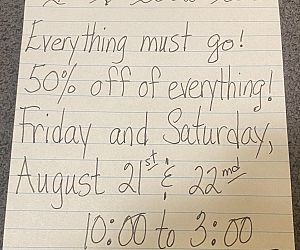 Everything must go!
50% off of everything!
Friday and Saturday,
August 21st & 22nd
10:00 to 3:00